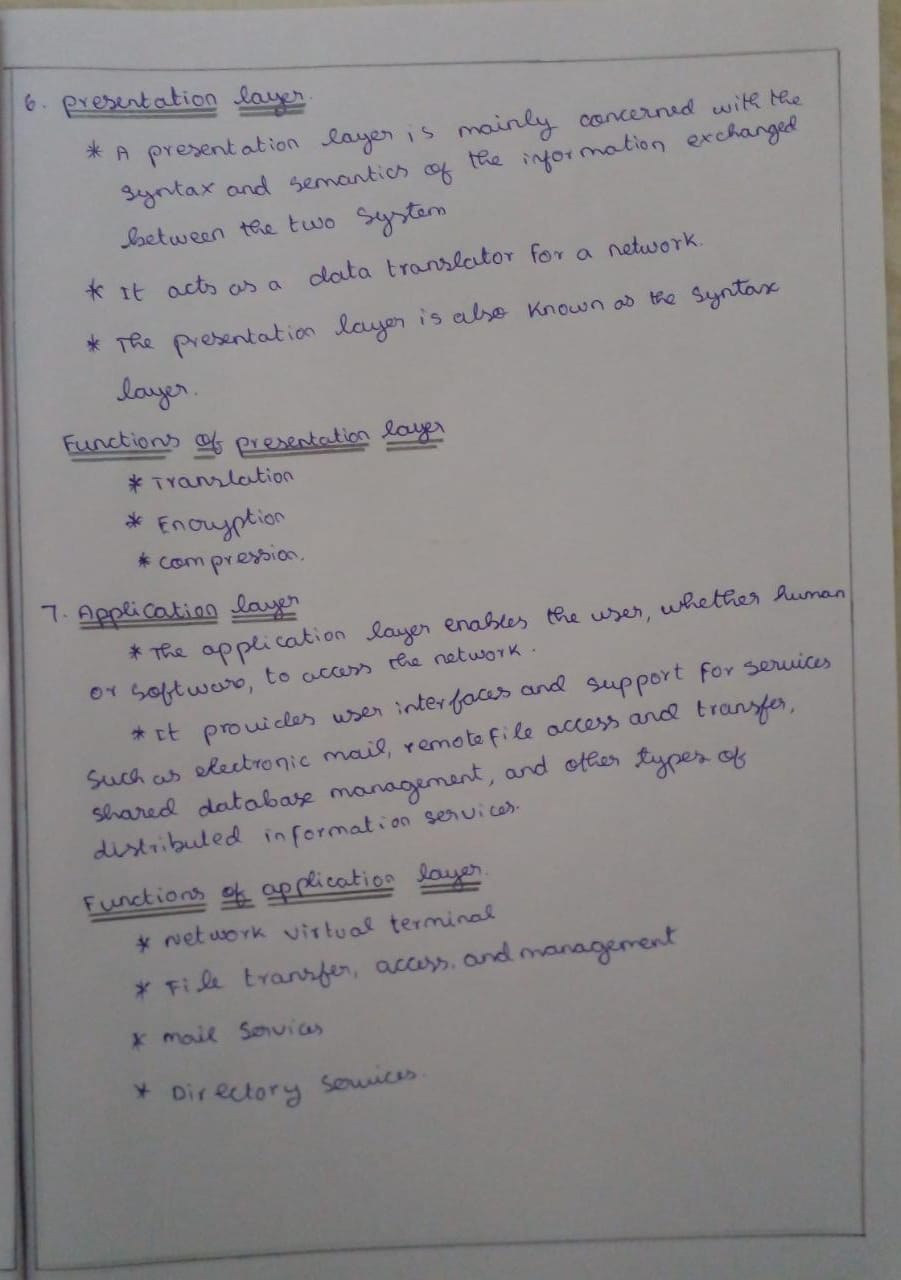 6. Presentation layer.
* A presentation layer is mainly concerned with the
syntax and semantics of the information exchanged
between the two system
* It acts as a data translator for a network.
* The presentation layer is also known as the syntax
layer.
Functions of presentation layer
* Translation
* Encryption
* compression.
7. Application layer
* The application layer enables the user, whether human
or software, to access the network.
* It provides user interfaces and support for services
such as electronic mail, remote file access and transfer,
shared database management, and other types of
distributed information services.
Functions of application layer.
* Network virtual terminal
* File transfer, access, and management
* mail services
* Directory services.